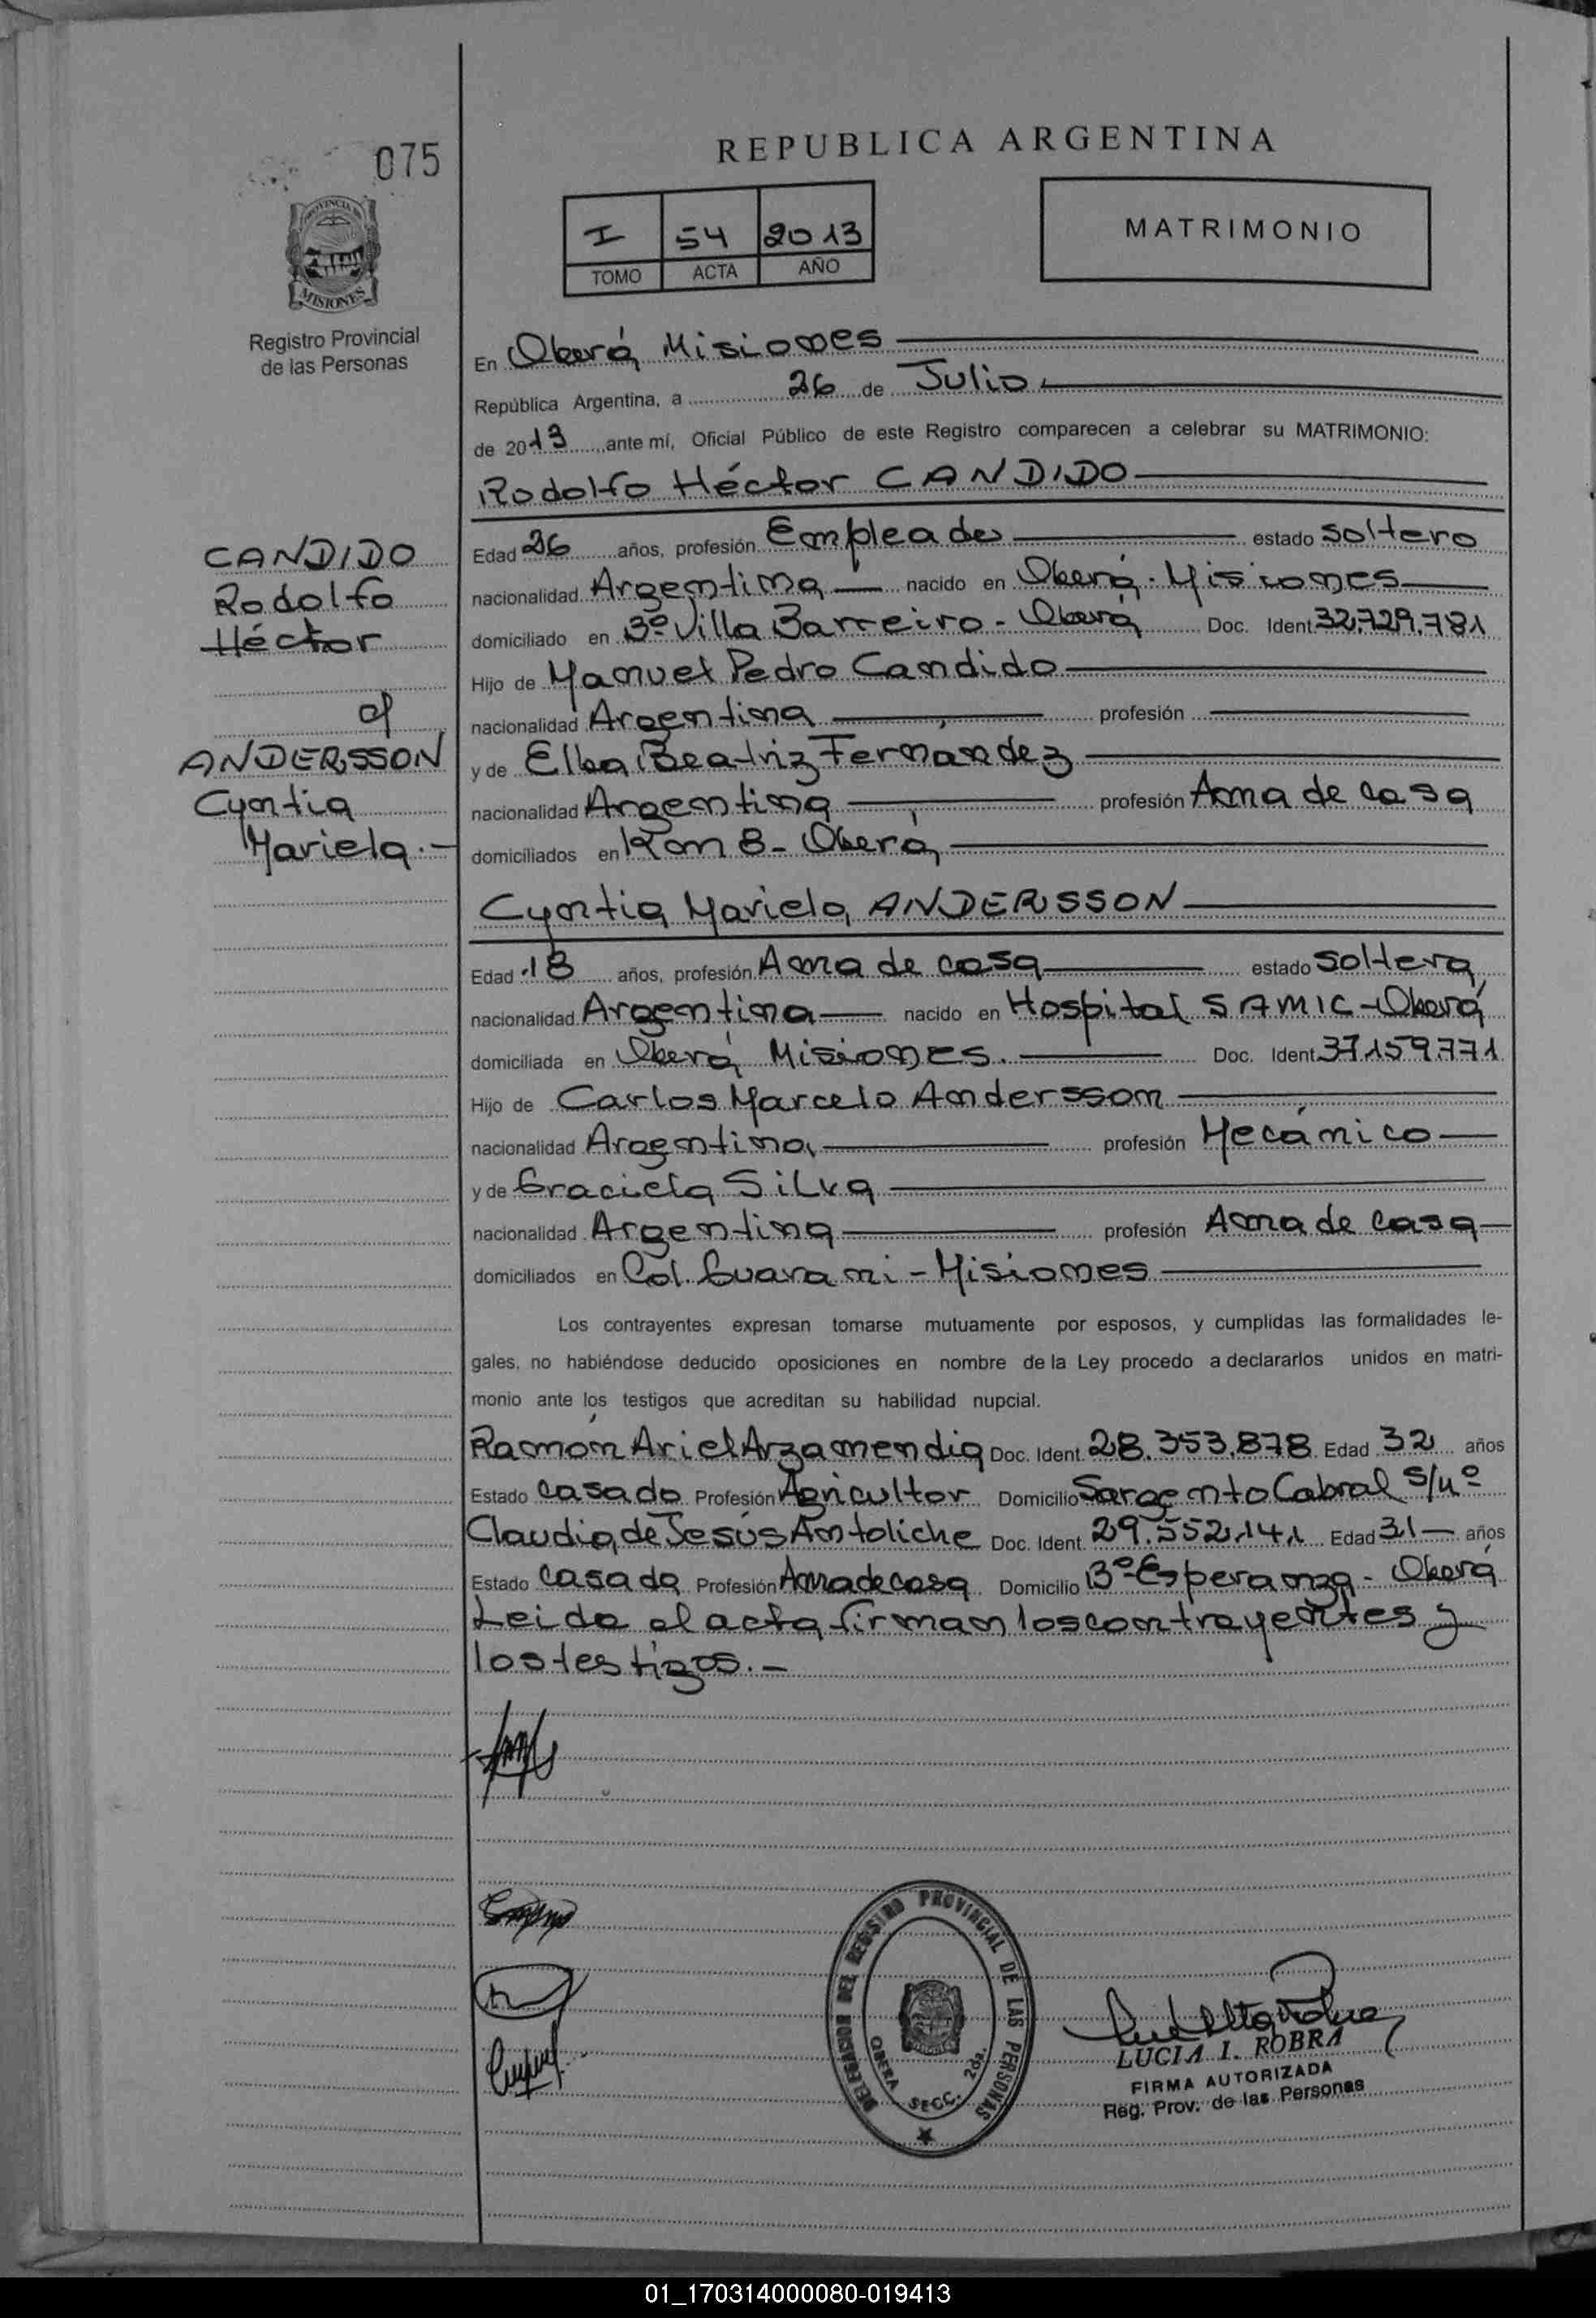 075
REPUBLICA ARGENTINA
PROVINCIA DE
MISIONES
Registro Provincial
de las Personas
I 54 2013
TOMO ACTA AÑO
MATRIMONIO
En Oberá Misiones
República Argentina, a 26 de Julio
de 2013 ante mí, Oficial Público de este Registro comparecen a celebrar su MATRIMONIO:
Rodolfo Héctor CANDIDO
CANDIDO
Rodolfo
Héctor
c/
ANDERSSON
Cyntia
Mariela.-
Edad 26 años, profesión Empleado estado soltero
nacionalidad Argentina nacido en Oberá - Misiones
domiciliado en Bº Villa Barreiro - Oberá Doc. Ident. 32.729.781
Hijo de Manuel Pedro Candido
nacionalidad Argentina profesión
y de Elba Beatriz Fernández
nacionalidad Argentina profesión Ama de casa
domiciliados en Km 8 - Oberá
Cyntia Mariela ANDERSSON
Edad 18 años, profesión Ama de casa estado soltera
nacionalidad Argentina nacido en Hospital SAMIC - Oberá
domiciliada en Oberá Misiones. Doc. Ident. 37.159.771
Hijo de Carlos Marcelo Andersson
nacionalidad Argentina profesión Mecánico
y de Graciela Silva
nacionalidad Argentina profesión Ama de casa
domiciliados en Col. Guarani - Misiones
Los contrayentes expresan tomarse mutuamente por esposos, y cumplidas las formalidades le-
gales, no habiéndose deducido oposiciones en nombre de la Ley procedo a declararlos unidos en matri-
monio ante los testigos que acreditan su habilidad nupcial.
Ramón Ariel Arzamendia Doc. Ident. 28.353.878 Edad 32 años
Estado casado Profesión Agricultor Domicilio Sargento Cabral s/nº
Claudia de Jesús Antoliche Doc. Ident. 29.552.141 Edad 31 años
Estado casada Profesión Ama de casa Domicilio Bº Esperanza - Oberá
Leida el acta firman los contrayentes y
los testigos.-
DELEGACION DEL REGISTRO PROVINCIAL DE LAS PERSONAS
OBERA SECC. 2da.
LUCIA I. ROBRA
FIRMA AUTORIZADA
Reg. Prov. de las Personas
01_170314000080-019413